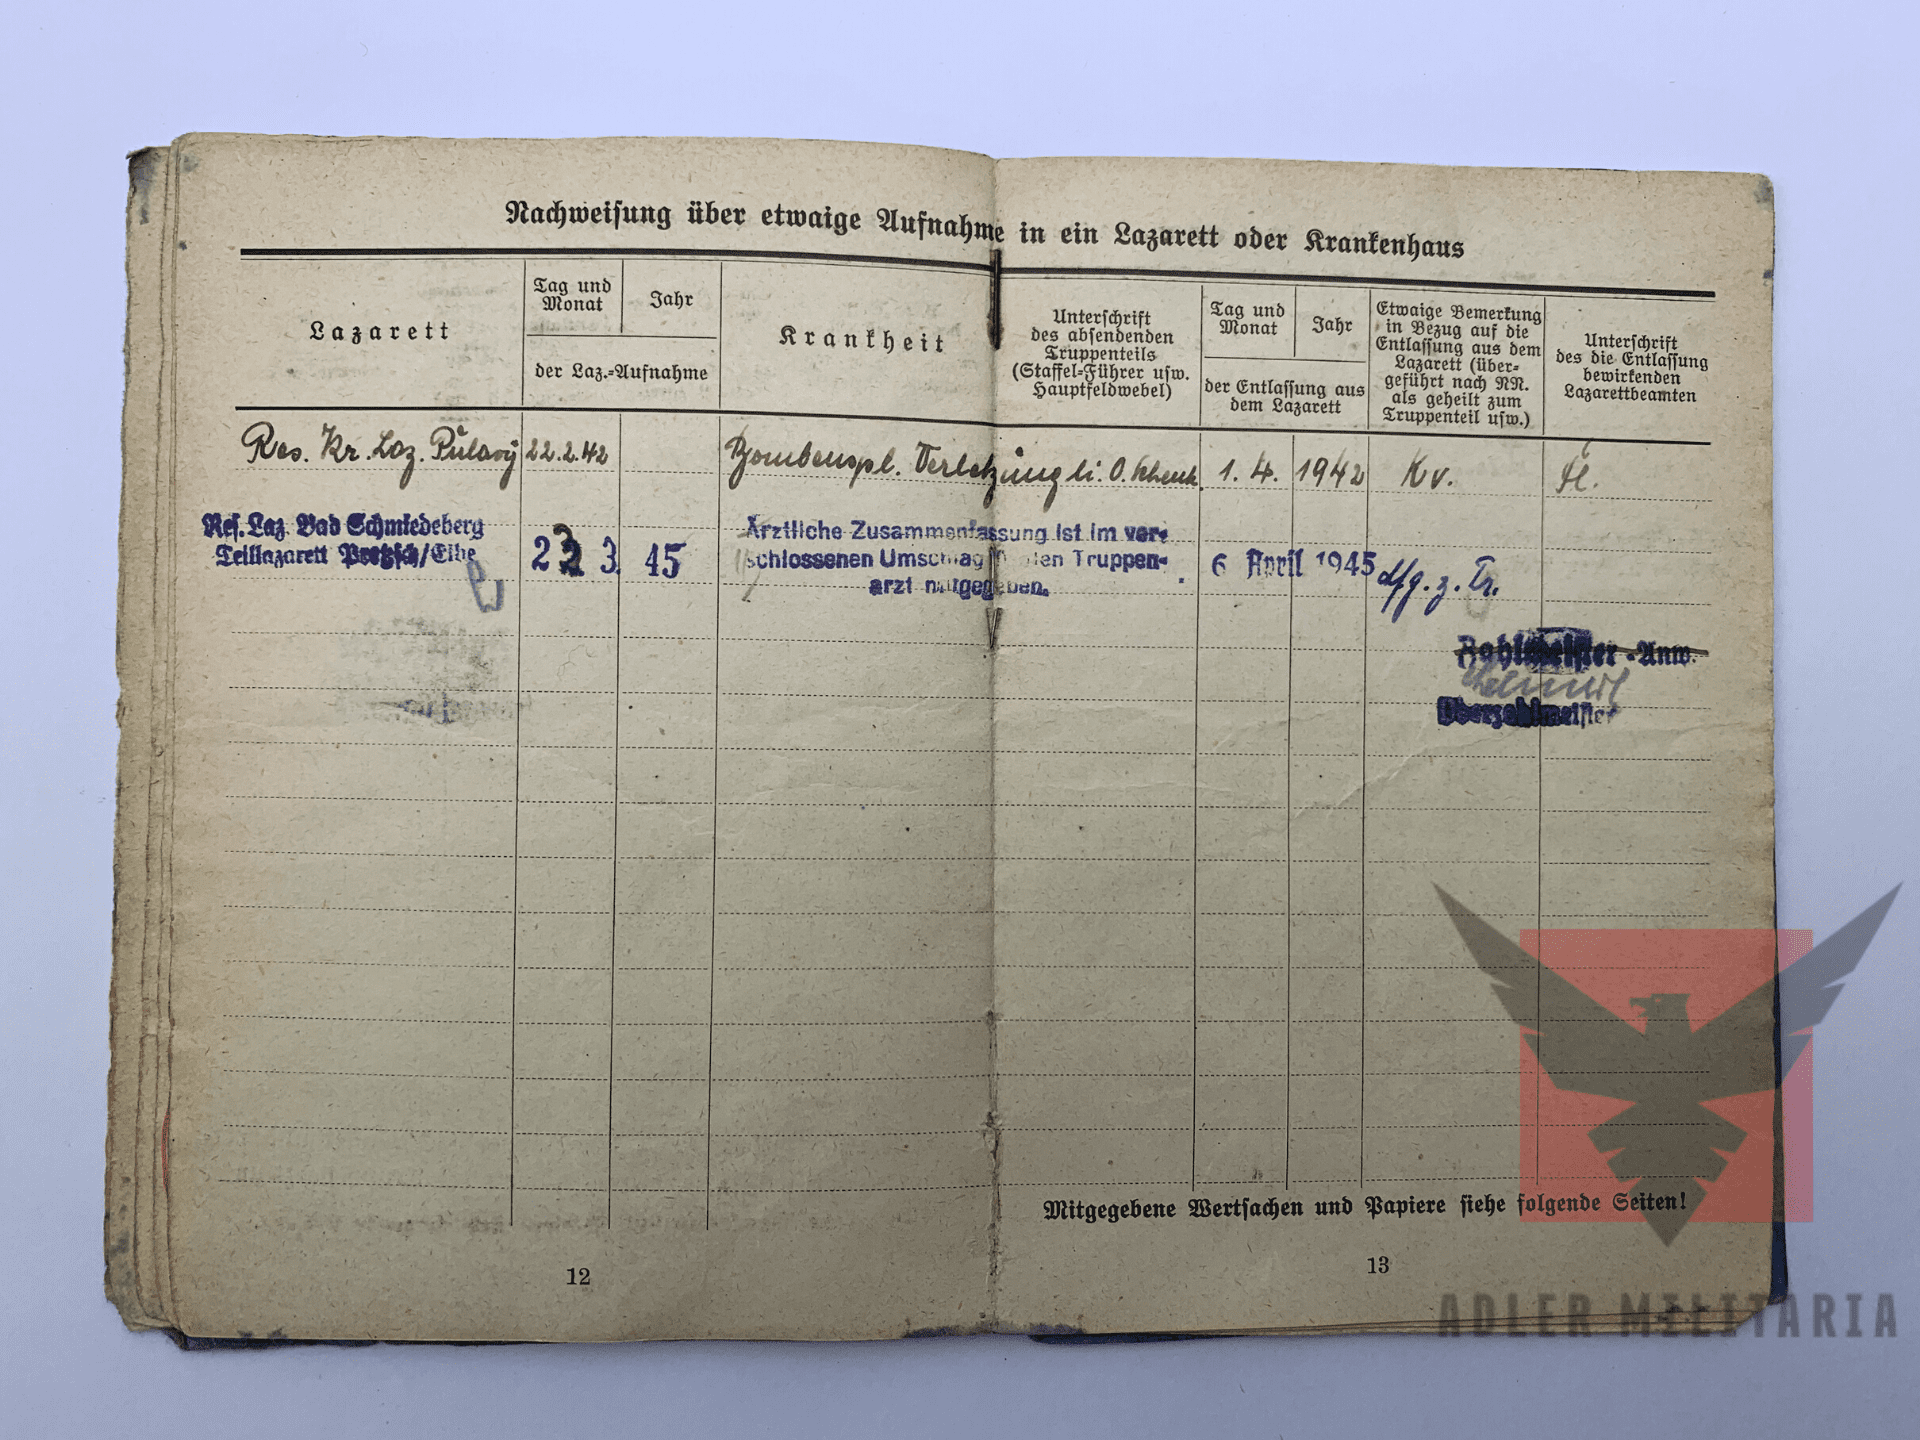 Nachweisung über etwaige Aufnahme in ein Lazarett oder Krankenhaus
Lazarett
Tag und
Monat
Jahr
der Laz.-Aufnahme
Krankheit
Unterschrift
des absendenden
Truppenteils
(Staffel-Führer usw.
Hauptfeldwebel)
Tag und
Monat
Jahr
der Entlassung aus
dem Lazarett
Etwaige Bemerkung
in Bezug auf die
Entlassung aus dem
Lazarett (über-
geführt nach NN.
als geheilt zum
Truppenteil usw.)
Unterschrift
des die Entlassung
bewirkenden
Lazarettbeamten
Res. Kr. Laz. Pulawy 22.2.42 Bombenspl. Verletzung li. O. schenk. 1. 4. 1942 Kv.
Res. Laz. Bad Schmiedeberg
Teillazarett Pretzsch/Elbe
23 3. 45
Ärztliche Zusammenfassung ist im ver-
schlossenen Umschlag den Truppen-
arzt mitgegeben.
6 April 1945 dfg. z. Tr.
Zahlmeister-Anw.
Oberzahlmeister
Mitgegebene Wertsachen und Papiere siehe folgende Seiten!
12
13
ADLER MILITARIA